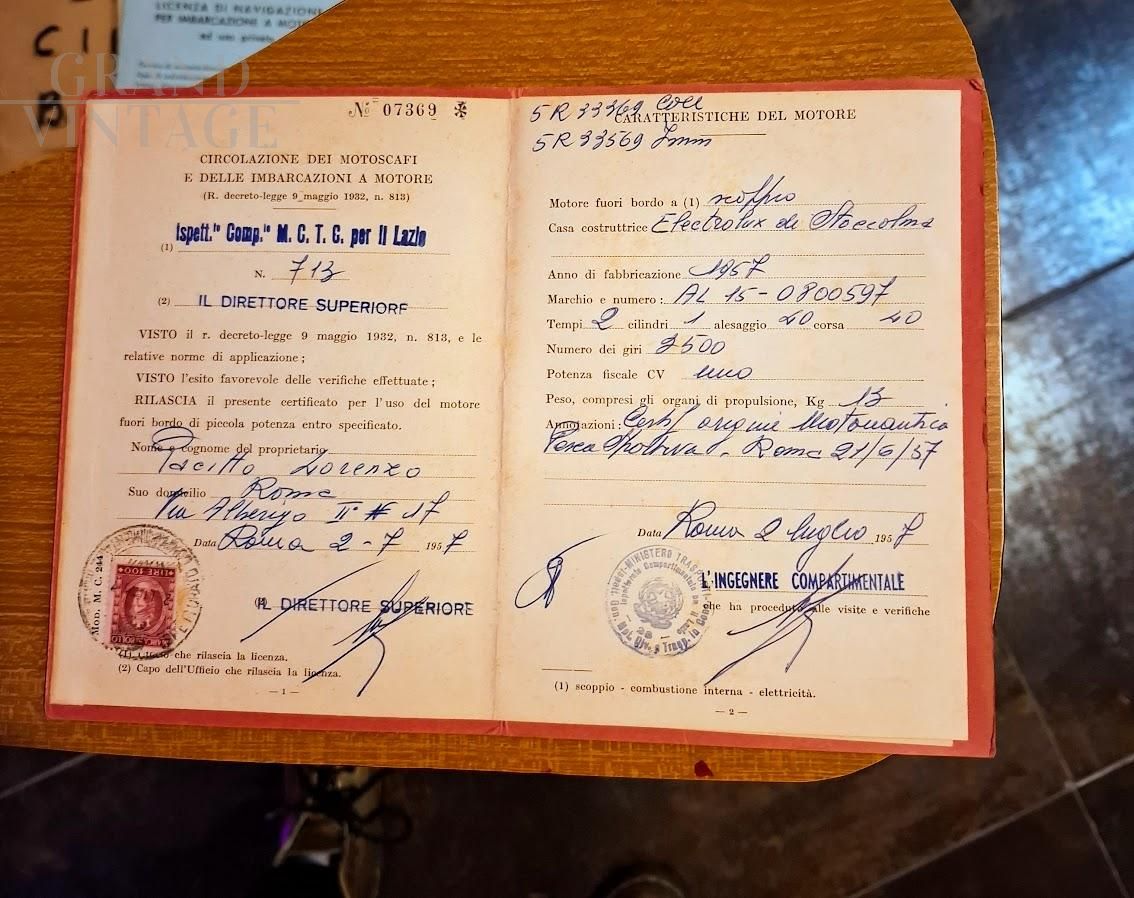 LICENZA DI NAVIGAZIONE
PER IMBARCAZIONI A MOTORE
ad uso privato
GRAND
VINTAGE
Nº 07369
CIRCOLAZIONE DEI MOTOSCAFI
E DELLE IMBARCAZIONI A MOTORE
(R. decreto-legge 9 maggio 1932, n. 813)
(1) Ispett.to Comp.le M. C. T. C. per il Lazio
N. 713
(2) IL DIRETTORE SUPERIORE
VISTO il r. decreto-legge 9 maggio 1932, n. 813, e le
relative norme di applicazione;
VISTO l'esito favorevole delle verifiche effettuate;
RILASCIA il presente certificato per l'uso del motore
fuori bordo di piccola potenza entro specificato.
Nome e cognome del proprietario
Pacitto Lorenzo
Suo domicilio Roma
Via Alberigo II # 17
Data Roma 2-7 1957
IL DIRETTORE SUPERIORE
LIRE 100
MOD. M. C. 244
(1) Ufficio che rilascia la licenza.
(2) Capo dell'Ufficio che rilascia la licenza.
— 1 —
5R 33369 Coll
5R 33569 Imm
CARATTERISTICHE DEL MOTORE
Motore fuori bordo a (1) scoppio
Casa costruttrice Electrolux de Stoccolma
Anno di fabbricazione 1957
Marchio e numero: AL 15-0800597
Tempi 2 cilindri 1 alesaggio 40 corsa 40
Numero dei giri 3500
Potenza fiscale CV uno
Peso, compresi gli organi di propulsione, Kg 13
Annotazioni: Cert/ origine Motonautica
Pesca Sportiva - Roma 21/6/57
Data Roma 2 luglio 1957
MINISTERO TRASPORTI
L'INGEGNERE COMPARTIMENTALE
che ha proceduto alle visite e verifiche
(1) scoppio - combustione interna - elettricità.
— 2 —